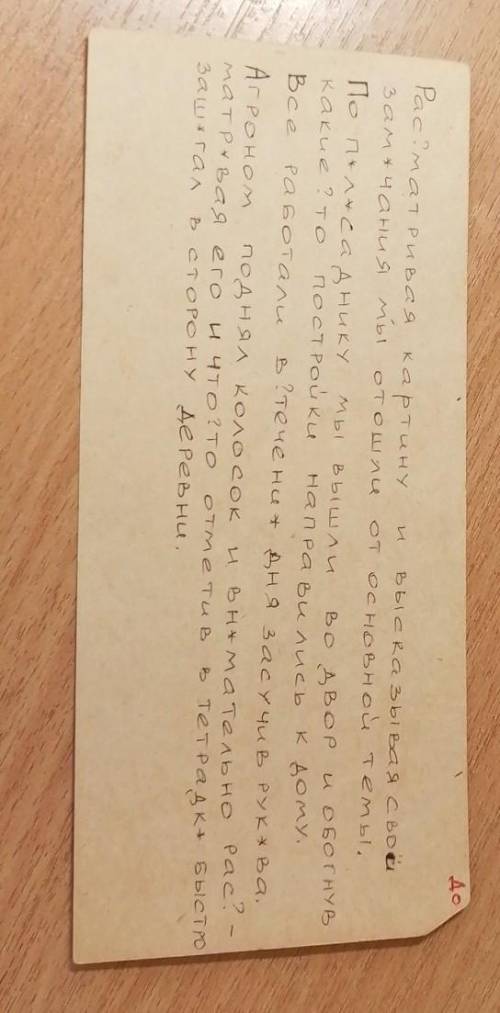 До
Рас?матривая картину и высказывая свои
зам*чания мы отошли от основной темы.
По п*л*саднику мы вышли во двор и обогнув
какие?то постройки направились к дому.
Все работали в?течени* дня засучив рук*ва.
Агроном поднял колосок и вн*мательно рас?-
матр*вая его и что?то отметив в тетрадк* быстро
заш*гал в сторону деревни.